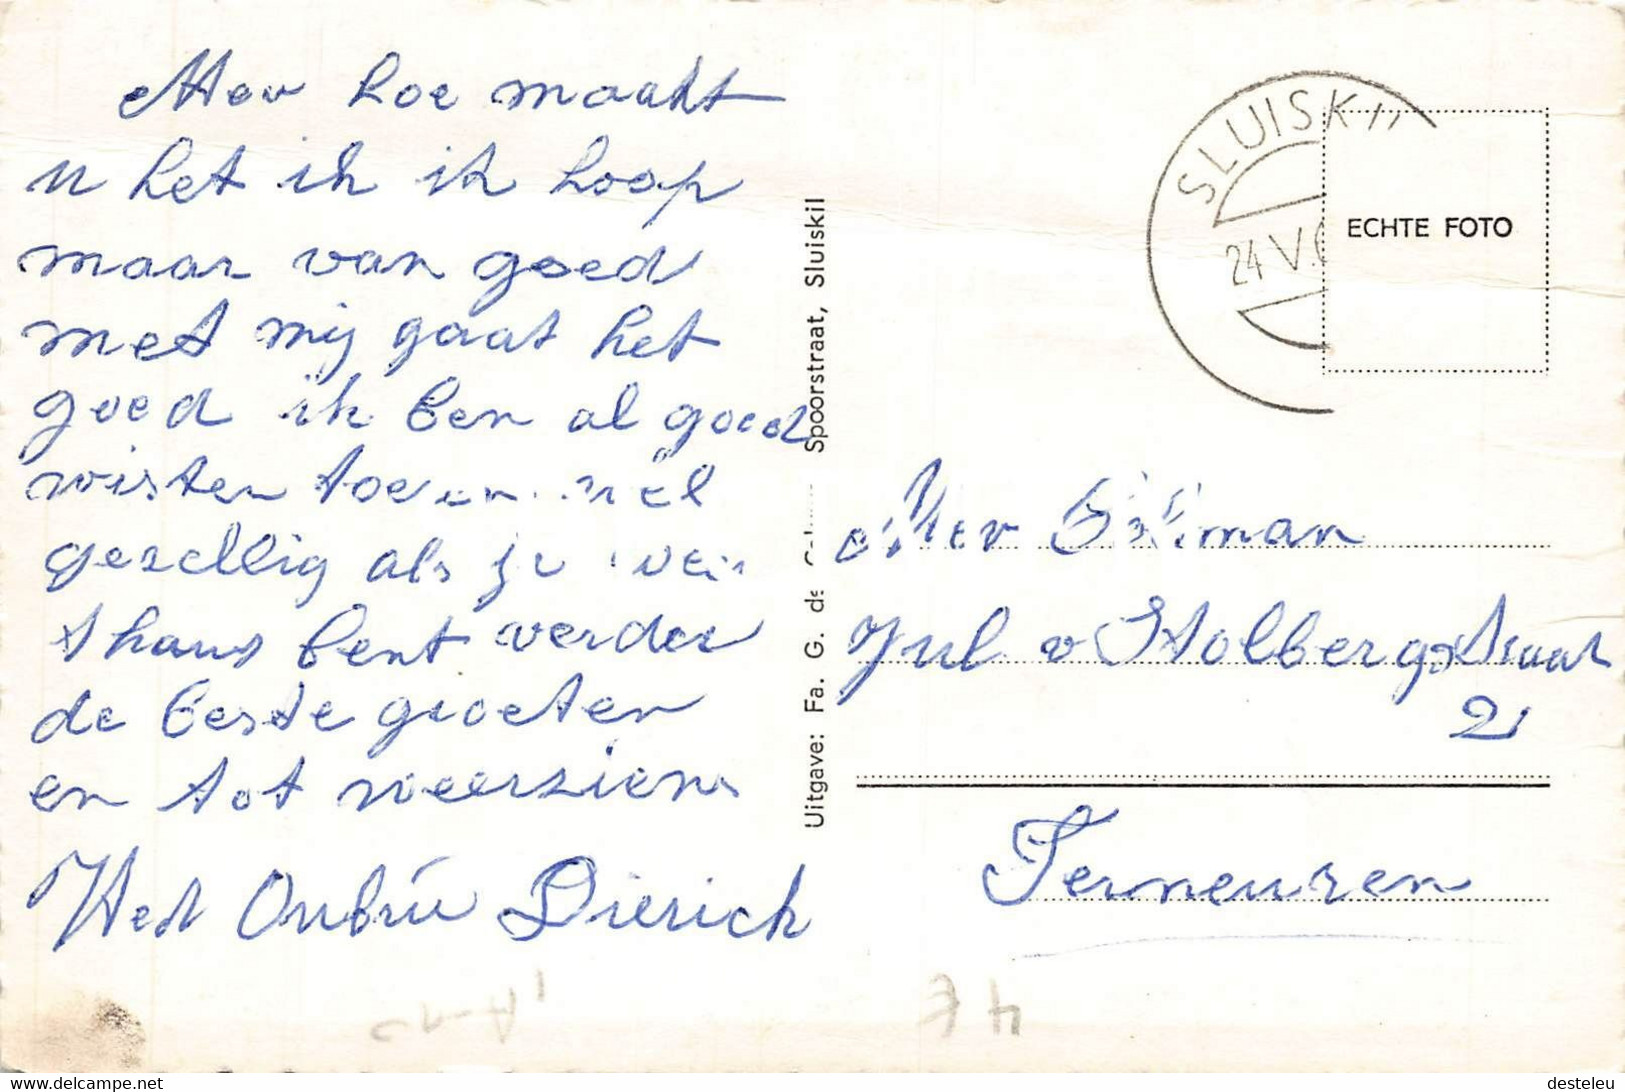 Mev hoe maakt
u het ik ik hoop
maar van goed
met mij gaat het
goed ik ben al goed
wisten toe en
gezellig als je
thans bent verder
de beste groeten
en tot weerziens
Wed Onbrú Dierich
Uitgave: Fa. G. de Spoorstraat, Sluiskil
SLUISKIL
24 V.6
ECHTE FOTO
Mev
Jul v Stolbergstraat
2
Terneuzen
4 €
www.delcampe.net
desteleu